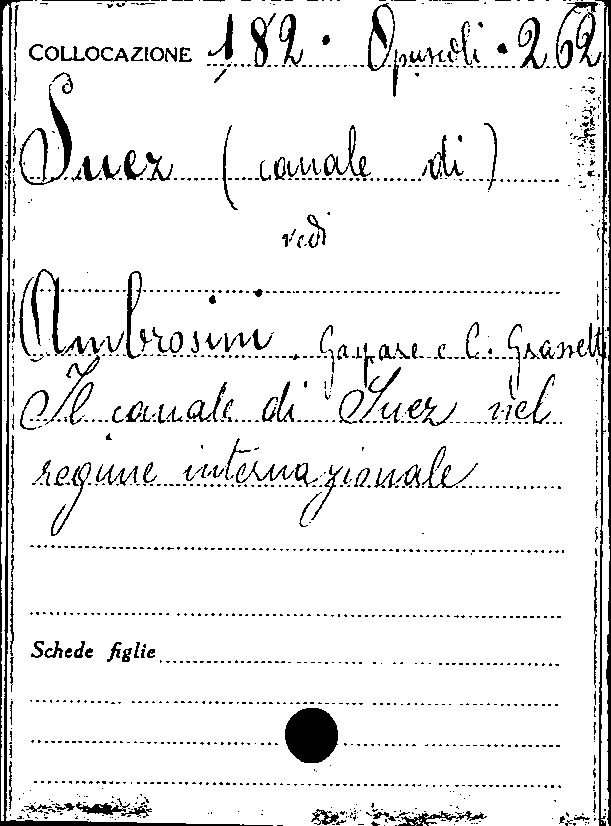 COLLOCAZIONE 182 · Opuscoli · 262
Suez (canale di)
vedi
Ambrosini, Gaspare e C. Grassetti
Il canale di Suez nel
regime internazionale
Schede figlie